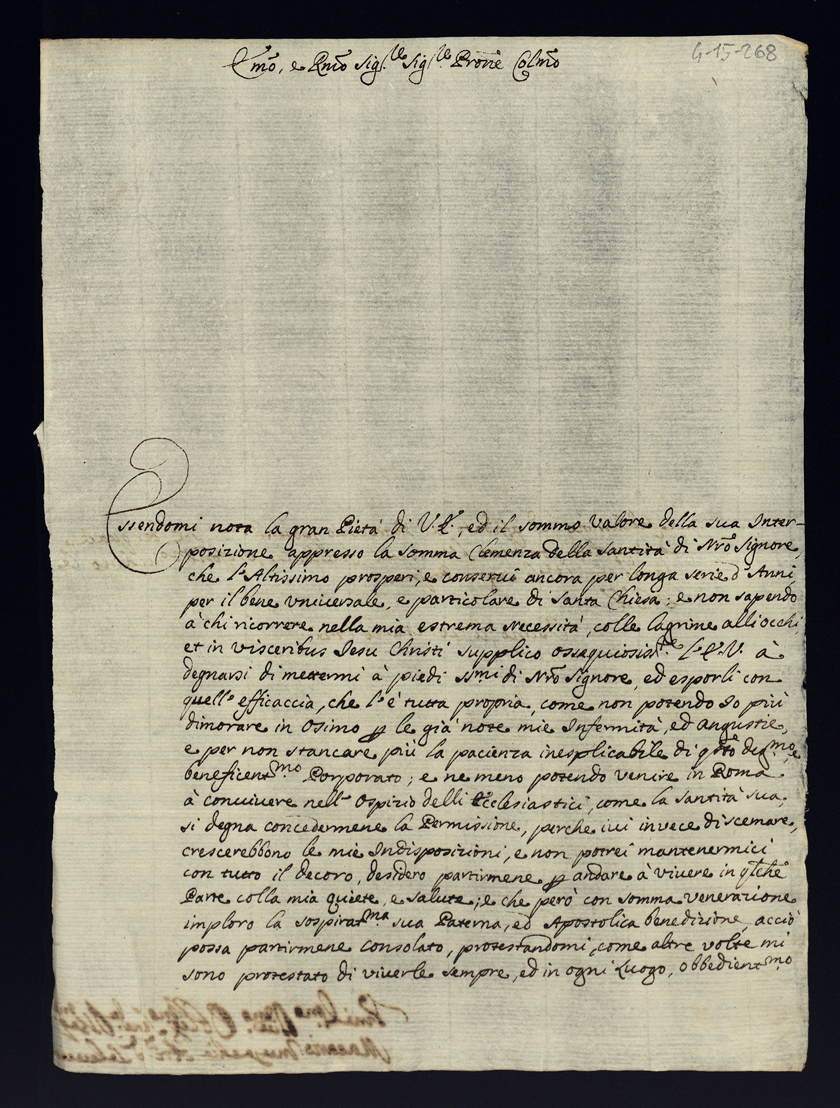 4-15-268
Emõ, e Rmõ Sig.re Sig.re Prone Colmõ
Essendomi nota la gran Pietà di V. E., ed il sommo valore della sua Inter-
posizione appresso la somma Clemenza della Santità di Nrõ Signore,
che l'Altissimo prosperi, e conservi ancora per longa serie d'Anni,
per il bene vniversale, e particolare di Santa Chiesa; e non sapendo
à chi ricorrere nella mia estrema necessità, colle lagrime alli occhi,
et in visceribus Jesu Christi supplico ossequiosissme l'E. V. à
degnarsi di mettermi à piedi SSmi di Nrõ Signore, ed esporli con
quell'efficaccia, che l'è tutta propria, come non potendo Io più
dimorare in Osimo p le già note mie Infermità, ed angustie,
e per non stancare più la pacienza inesplicabile di qsto degmo, e
beneficentmo Porporato; e ne meno potendo venire in Roma
à convivere nell'Ospizio delli Ecclesiastici, come la Santità sua
si degna concedermene la Permissione, perche ivi invece di scemare,
crescerebbono le mie Indisposizioni, e non potrei mantenermici
con tutto il decoro, desidero partirmene p andare à vivere in qlche
Parte colla mia quiete, e salute; e che però con somma venerazione
imploro la sospiratma sua Paterna, ed Apostolica benedizione, acciò
possa partirmene consolato, protestandomi, come altre volte mi
sono protestato di viverle sempre, ed in ogni Luogo, obbedientmo